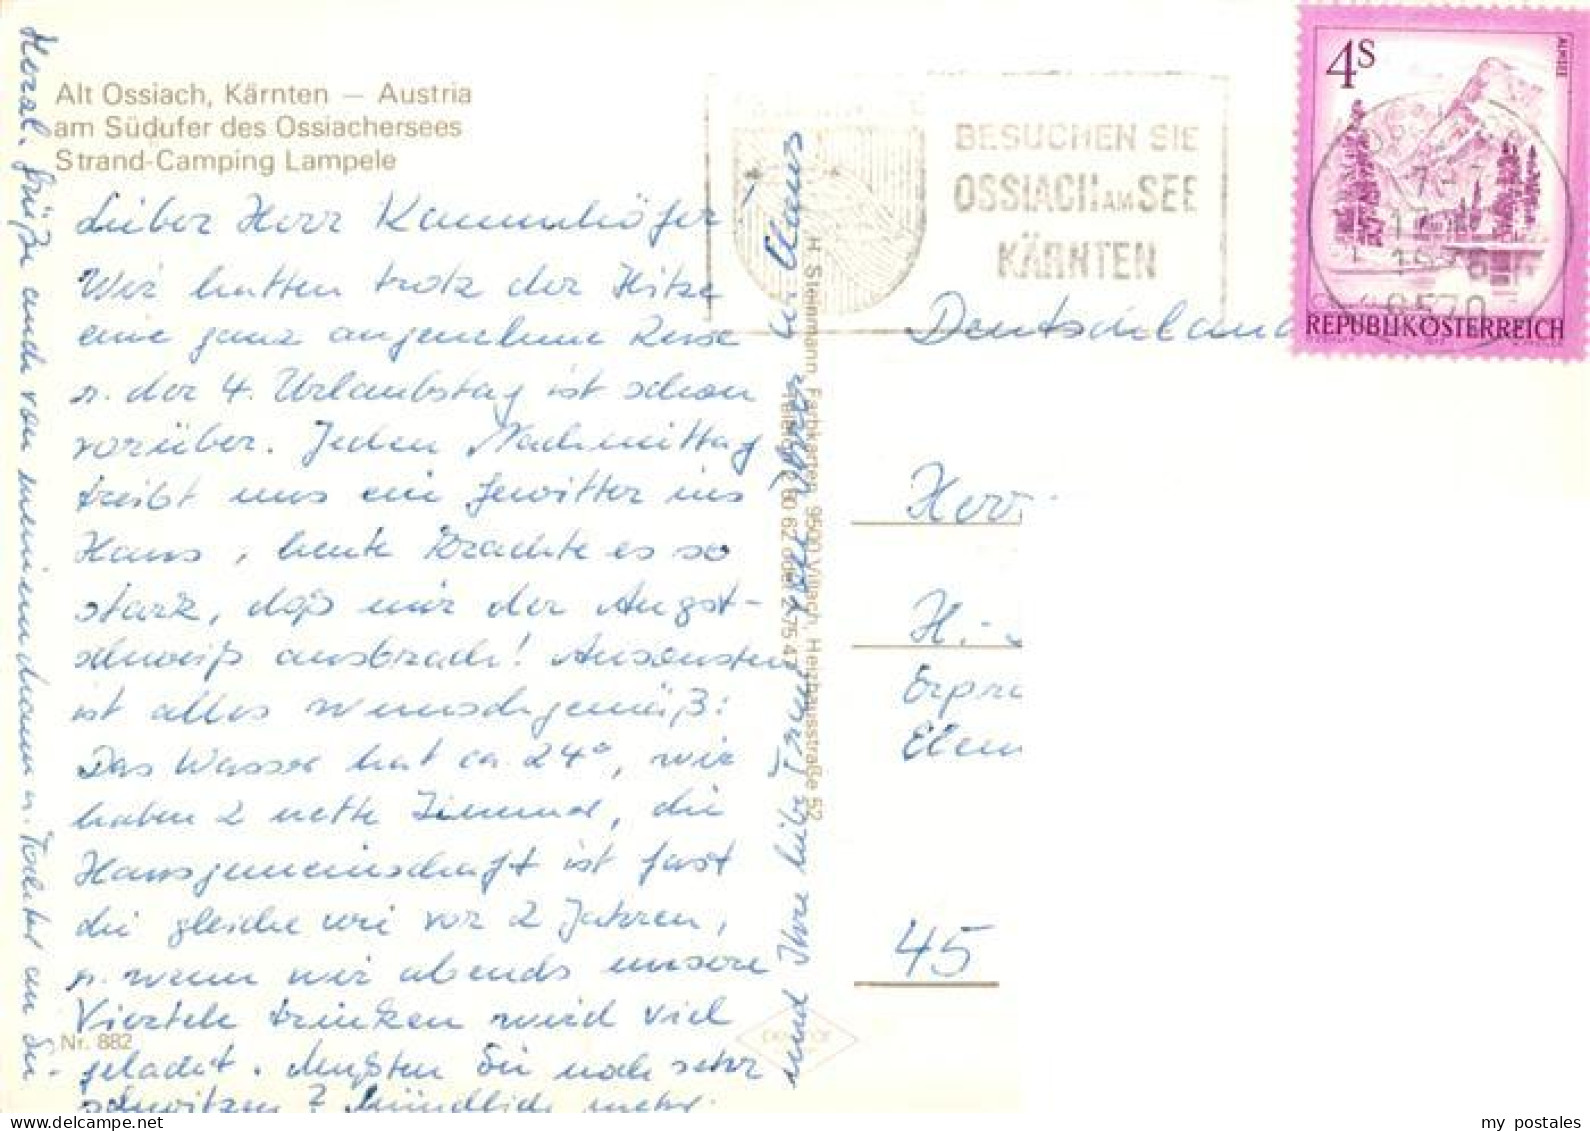 Alt Ossiach, Kärnten — Austria
am Südufer des Ossiachersees
Strand-Camping Lampele
Lieber Herr Kammhöfer!
Wir hatten trotz der Hitze
eine ganz angenehme Reise
u. der 4. Urlaubstag ist schon
vorüber. Jeden Nachmittag
treibt uns ein Gewitter ins
Haus, heute krachte es so
stark, daß mir der Angst-
schweiß ausbrach! Ansonsten
ist alles wunschgemäß:
Das Wasser hat ca. 24°, wir
haben 2 nette Zimmer, die
Hausgemeinschaft ist fast
die gleiche wie vor 2 Jahren,
u. wenn wir abends unsere
Viertele trinken wird viel
gelacht. Mußten Sie noch sehr
schwitzen? Mündlich mehr.
Herzl. Grüße auch von meinem Mann u. Tochter an Sie
und Ihre liebe Frau
u. Claus
Nr. 882
H. Steinmann, Farbkarten, 9500 Villach, Heizhausstraße 52
BESUCHEN SIE
OSSIACH AM SEE
KÄRNTEN
4S
ALMSEE
REPUBLIK ÖSTERREICH
9570
Deutschland
Herr
H.
45
my postales